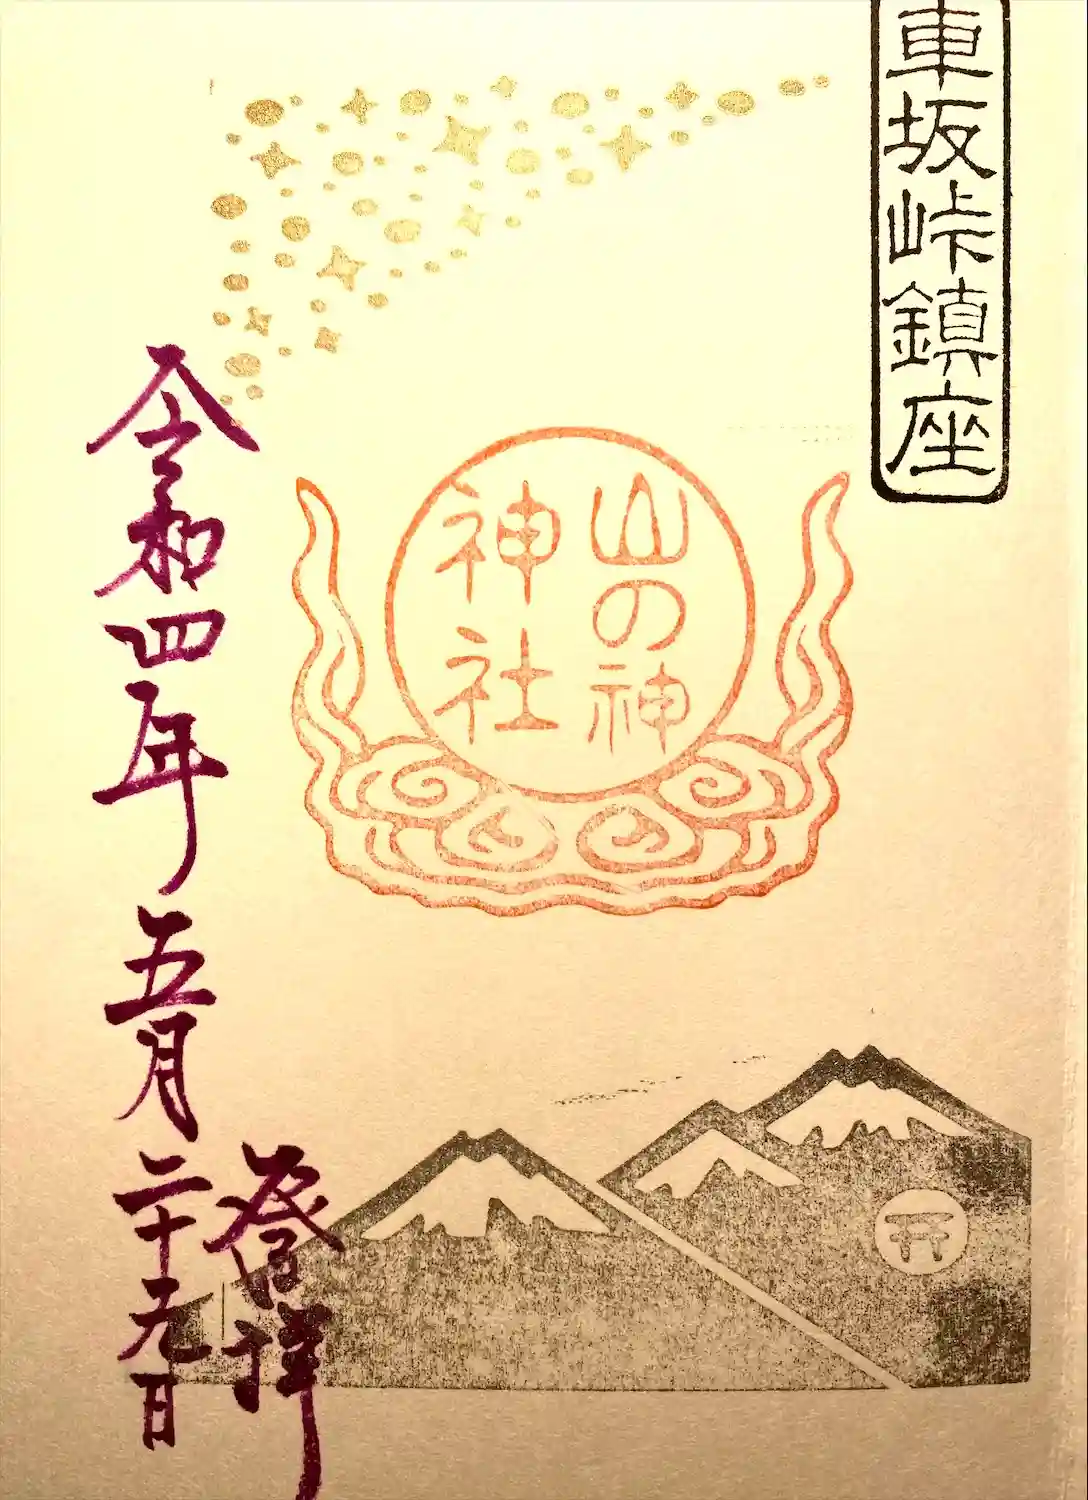 車坂峠鎮座
山の神
神社
登拝
令和四年五月二十九日